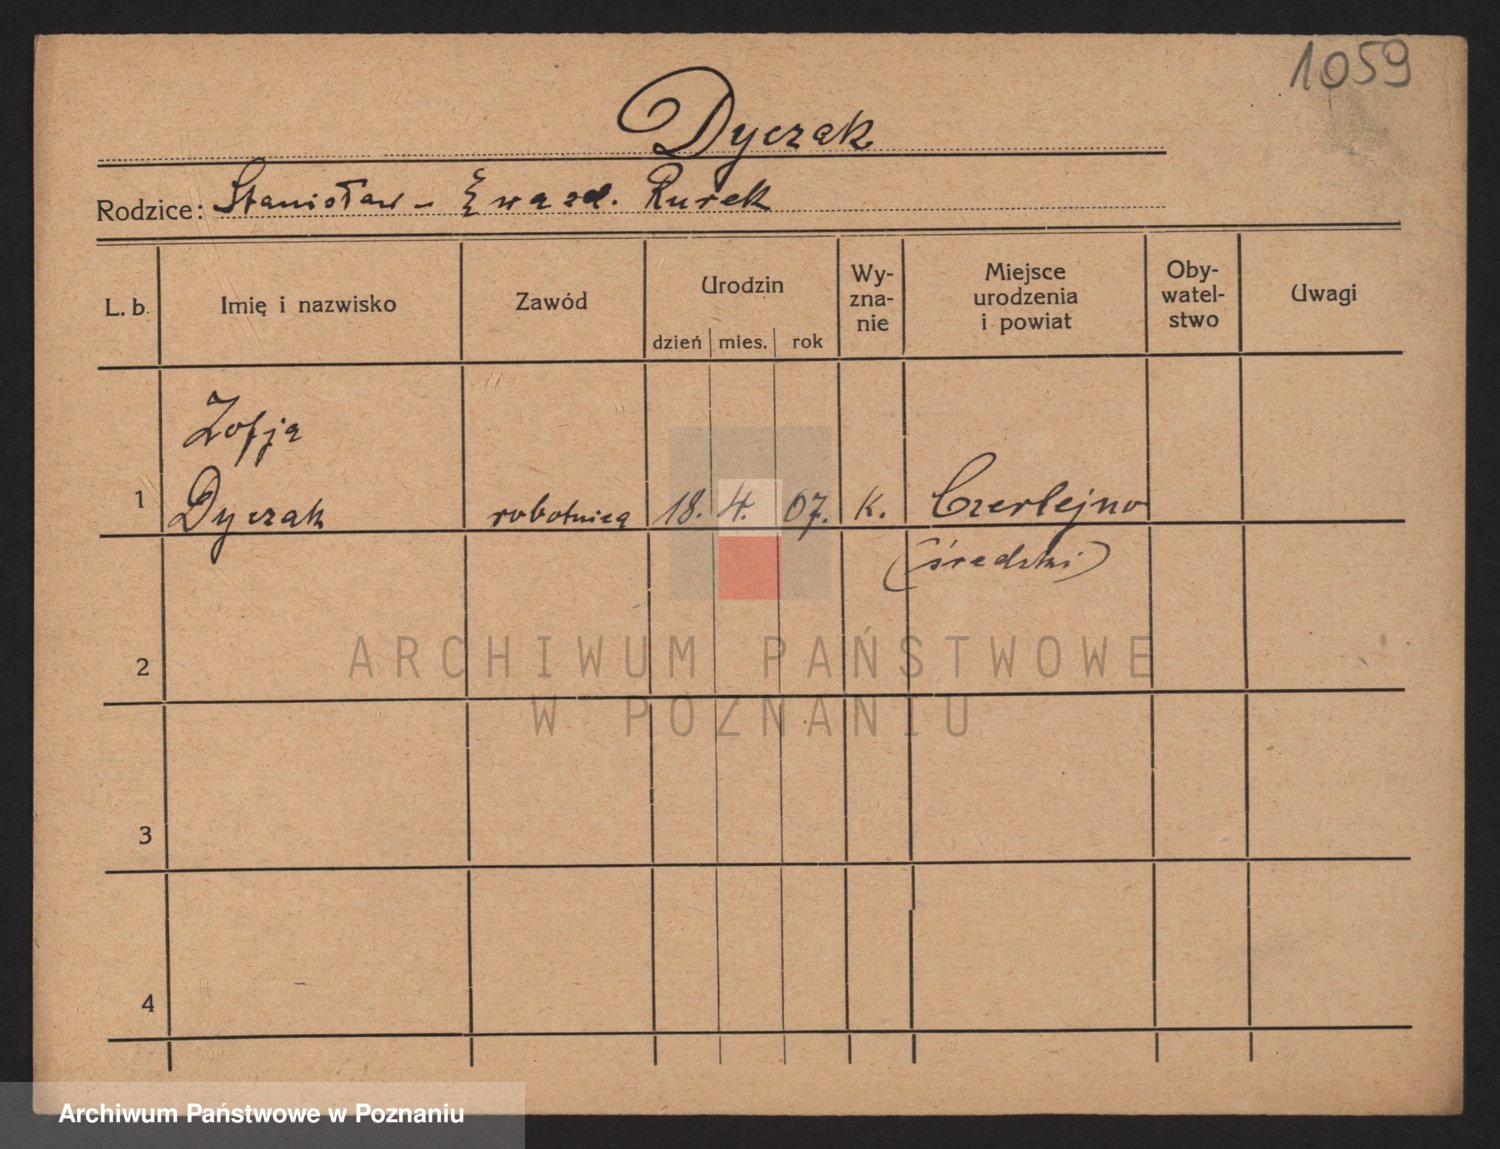 1059
Dyczak
Rodzice: Stanisław – Ewa zd. Rurek
L. b. Imię i nazwisko Zawód Urodzin dzień mies. rok Wy-zna-nie Miejsce urodzenia i powiat Oby-watel-stwo Uwagi
Zofja
1 Dyczak robotnica 18. 4. 07. k. Czerlejno
(średzki)
2
ARCHIWUM PAŃSTWOWE
W POZNANIU
3
4
Archiwum Państwowe w Poznaniu